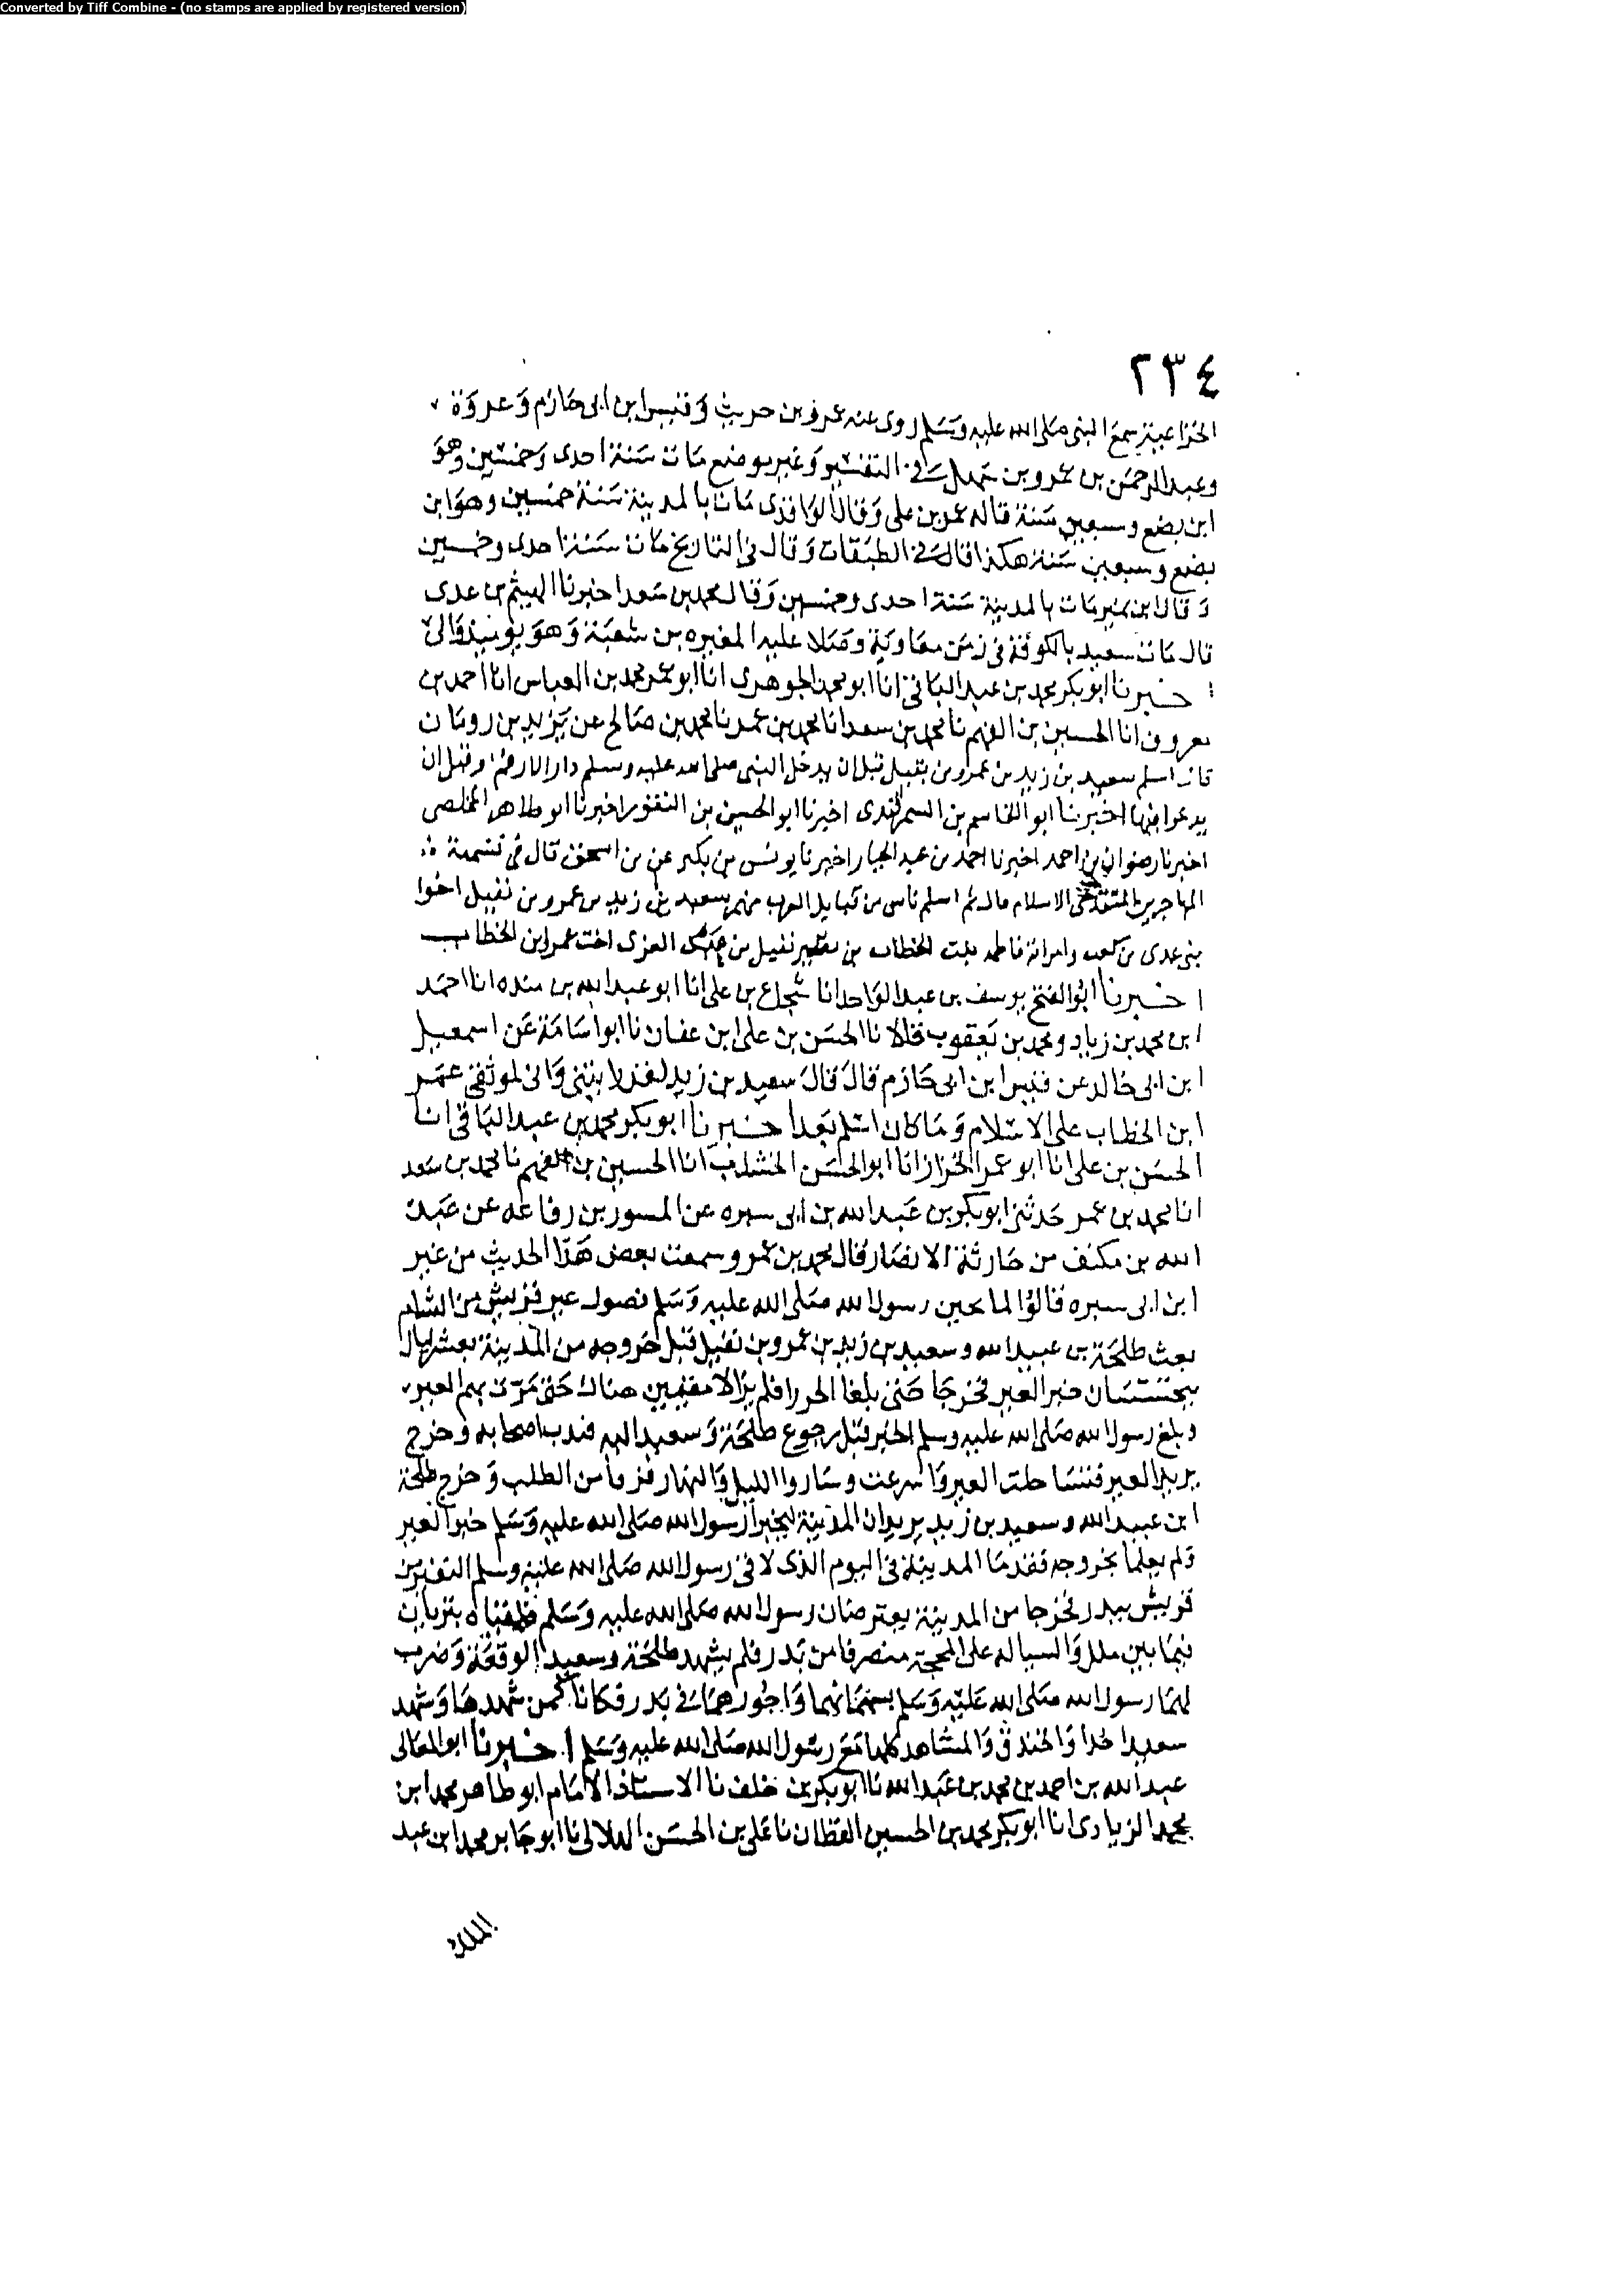 Converted by Tiff Combine - (no stamps are applied by registered version)
٢٣٤
الخزاعية سمع النبي صلى الله عليه وسلم روى عنه عمرو بن حريث وقيس ابن ابي حازم وعروة
وعبد الرحمن بن عمرو بن سهل في التفسير وغير موضع مات سنة احدى وخمسين وهو
ابن بضع وسبعين سنة قاله عمرو بن على وقال الواقدى مات بالمدينة سنة خمسين وهو ابن
بضع وسبعين سنة هكذا قال في الطبقات وقال في التاريخ مات سنة احدى وخمسين
وقال ابن نمير مات بالمدينة سنة احدى وخمسين وقال محمد بن سعد اخبرنا الهيثم بن عدى
قال مات سعيد بالكوفة في زمن معاوية وصلا عليه المغيره بن شعبة وهو يومئذ والي
اخبرنا ابو بكر محمد بن عبد الباقي انا ابو محمد الجوهرى انا ابو عمر محمد بن العباس انا احمد بن
معروف انا الحسين بن الفهم نا محمد بن سعد انا محمد بن عمر نا محمد بن صالح عن يزيد بن رومان
قال اسلم سعيد بن زيد بن عمرو بن نفيل قبل ان يدخل النبي صلى الله عليه وسلم دار الارقم وقبل ان
يدعوا فيها اخبرنا ابو القاسم بن السمرقندى اخبرنا ابو الحسين بن النقور اخبرنا ابو طاهر المخلصى
اخبرنا رضوان بن احمد اخبرنا احمد بن عبد الجبار اخبرنا يونس بن بكير عن بن اسحق قال في تسمية
المهاجرين المتقدمى الاسلام قال ثم اسلم ناس من قبايل العرب منهم سعيد بن زيد بن عمرو بن نفيل اخوا
بنى عدى بن كعب وامراته فاطمه بنت الخطاب بن نفيل بن عبد العزى اخت عمر ابن الخطاب
اخبرنا ابو الفتح يوسف بن عبد الواحد انا شجاع بن على انا ابو عبد الله بن منده انا احمد
ابن محمد بن زياد ومحمد بن يعقوب قالا نا الحسن بن على ابن عفان نا ابو اسامة عن اسمعيل
ابن ابي خالد عن قيس ابن ابي حازم قال قال سعيد بن زيد لقد رايتني واني لموثقي عمر
ابن الخطاب على الاسلام وما كان اسلم بعد اخبرنا ابو بكر محمد بن عبد الباقي انا
الحسن بن على انا ابو عمر الخزاز انا ابو الحسن الخشاب انا الحسين بن الفهم نا محمد بن سعد
انا محمد بن عمر حدثني ابو بكر بن عبد الله بن ابي سبره عن المسور بن رفاعه عن عبد
الله بن مكنف من حارثة الانصار قال محمد بن عمر وسمعت بعض هذا الحديث من غير
ابن ابي سبره قالوا لما تحين رسول الله صلى الله عليه وسلم فصول عير قريش من الشام
بعث طلحة بن عبيد الله وسعيد بن زيد بن عمرو بن نفيل قبل خروجه من المدينة بعشر ليال
يتحسسان خبر العير فخرجا حتى بلغا الحورا فلم يزالا مقيمين هناك حتى مرت بهم العير
وبلغ رسول الله صلى الله عليه وسلم الخبر قبل رجوع طلحة وسعيد اليه فندب اصحابه وخرج
يريد العير فتساحلت العير واسرعت وساروا الليل والنهار فرقا من الطلب وخرج طلحة
ابن عبيد الله وسعيد بن زيد يريدان المدينة ليخبرا رسول الله صلى الله عليه وسلم خبر العير
ولم يعلما بخروجه فقدما المدينة في اليوم الذى لاقي رسول الله صلى الله عليه وسلم النفير من
قريش ببدر فخرجا من المدينة يعترضان رسول الله صلى الله عليه وسلم فلقياه بتربان
فيما بين ملل والسياله على المحجة منصرفا من بدر فلم يشهد طلحة وسعيد الوقعة وضرب
لهما رسول الله صلى الله عليه وسلم بسهمانهما واجورهما في بدر فكانا كمن شهدها وشهد
سعيد احدا والخندق والمشاهد كلها مع رسول الله صلى الله عليه وسلم اخبرنا ابو المعالى
عبد الله بن احمد بن محمد بن عبد الله نا ابو بكر بن خلف نا الاستاذ الامام ابو طاهر محمد ابن
محمد الزيادى انا ابو بكر محمد بن الحسين القطان نا على بن الحسن الهلالى نا ابو جابر محمد ابن عبد
الملك